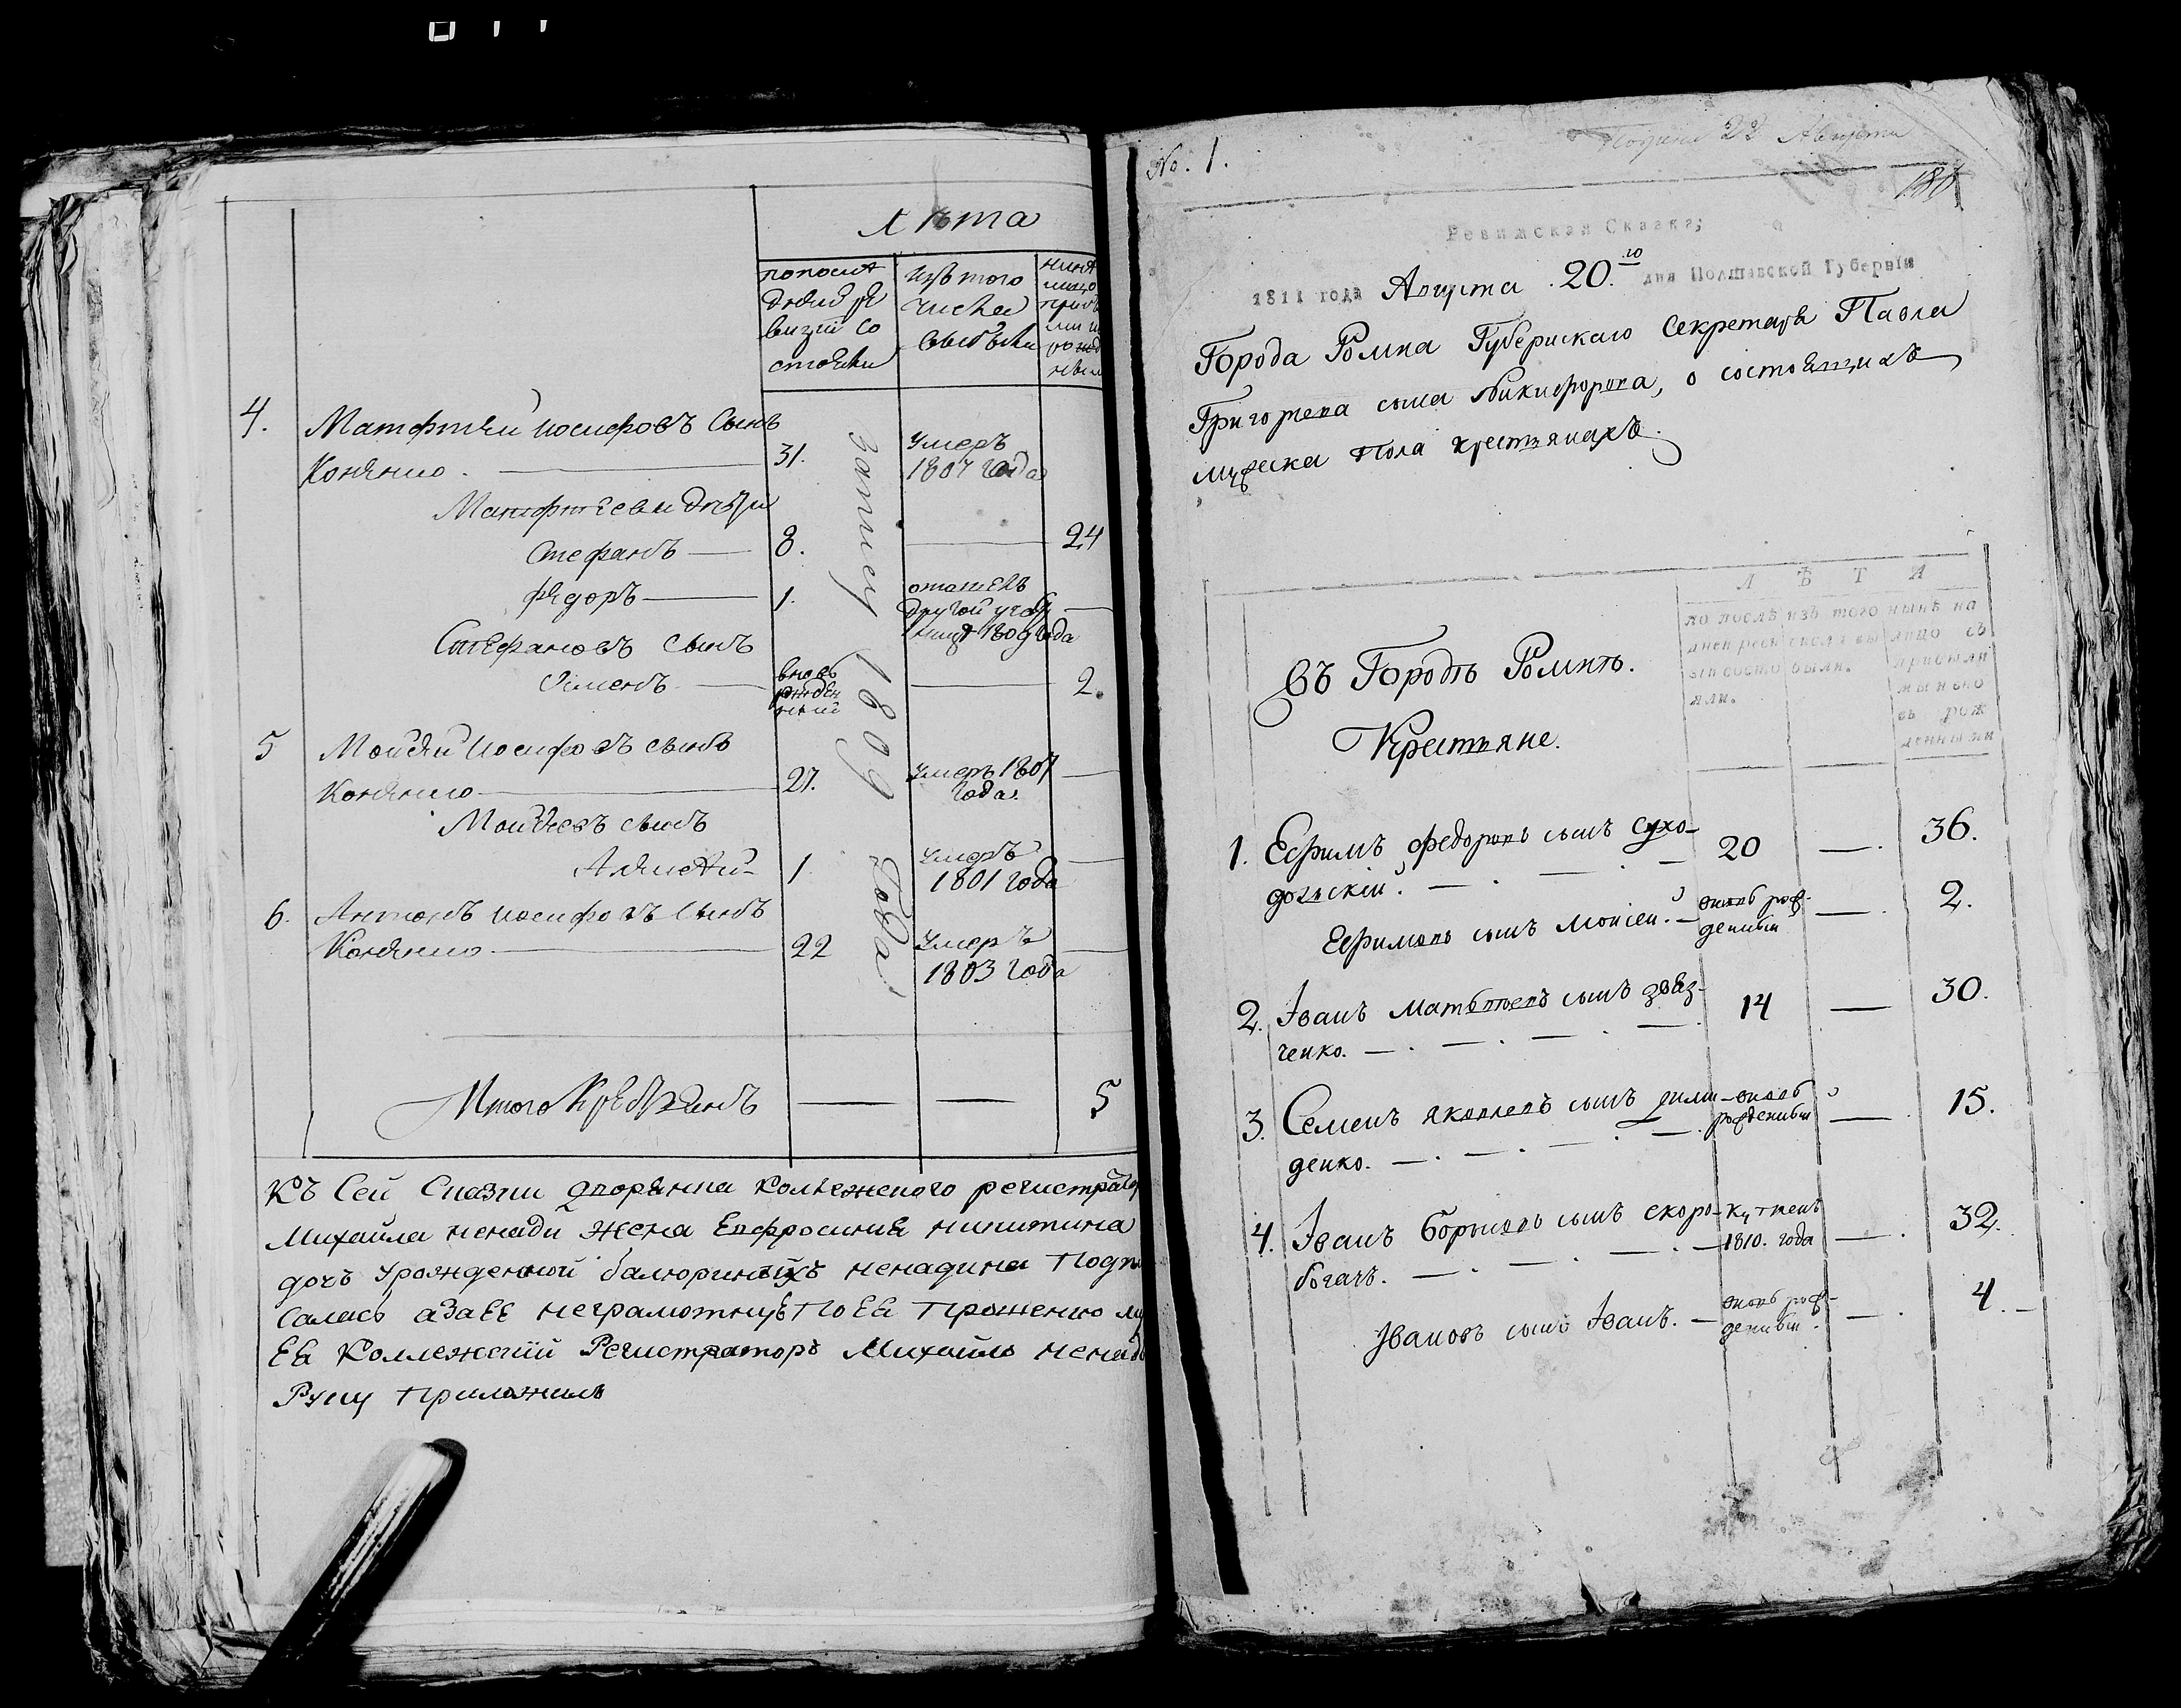 Лѣта
попослѣ
дней ре
визіи со
стояли
Изътого
числа
выбыли
4. Матфтей иосифовъ Сынъ
Конянко. 31. Умеръ 1807 года
Матфтеевы дѣти
Стефанъ 8. 24
Федоръ 1. отошелъ
другой
1809 года
Стефановъ сынъ
вновь
рожден
ный
2.
записи 1809 года
5 Мойсей Иосифовъ сынъ
Конянко 27. Умеръ 1807
года
Мойсеевъ сынъ
Алексѣй 1 Умеръ
1801 года
6. Антонъ иосифовъ Сынъ
Конянко 22 Умеръ
1803 года
Итого 5
Къ Сей Сказки дворянина колежского регистратор
Михайла ненади жена Евфросиния никитина
дочъ Урожденной ненадина Подпи
Салась азаЕЕ неграмотную ПоЕЯ Прошению му
ЕЯ Коллежский Регистраторъ Михайло ненад
Руку Приложилъ
No. 1.
22 Августа
Ревижская Сказка;
1811 года Августа 20.го дня Полтавской Губерніи
Города Ромна Губернскаго Секретаря Павла
Григорьева сына Никифорова, о состоящихъ
мужеска Пола крестьянахъ.
Л Ѣ Т А
по послѣ
дней реви
зіи состо
яли.
изъ того
числа вы
были.
нынѣ на
лицо съ
прибыли
ми и вно
въ рож
денными
Въ Городѣ Ромнѣ.
Крестьяне.
1. Ефимъ Федоровъ сынъ Сухо-
дольскій. 20 — 36.
Ефимовъ сынъ Моисей. вновь рож-
денный — 2.
2. Іванъ Матвѣевъ сынъ
ченко. 14 — 30.
3. Семенъ Яковлевъ сынъ вновь
денко. рожденный — 15.
4. Іванъ Борисовъ сынъ скоро- Купленъ
богачъ. 1810. года — 32.
Івановъ сынъ Іванъ. вновь рож-
денный. — 4.